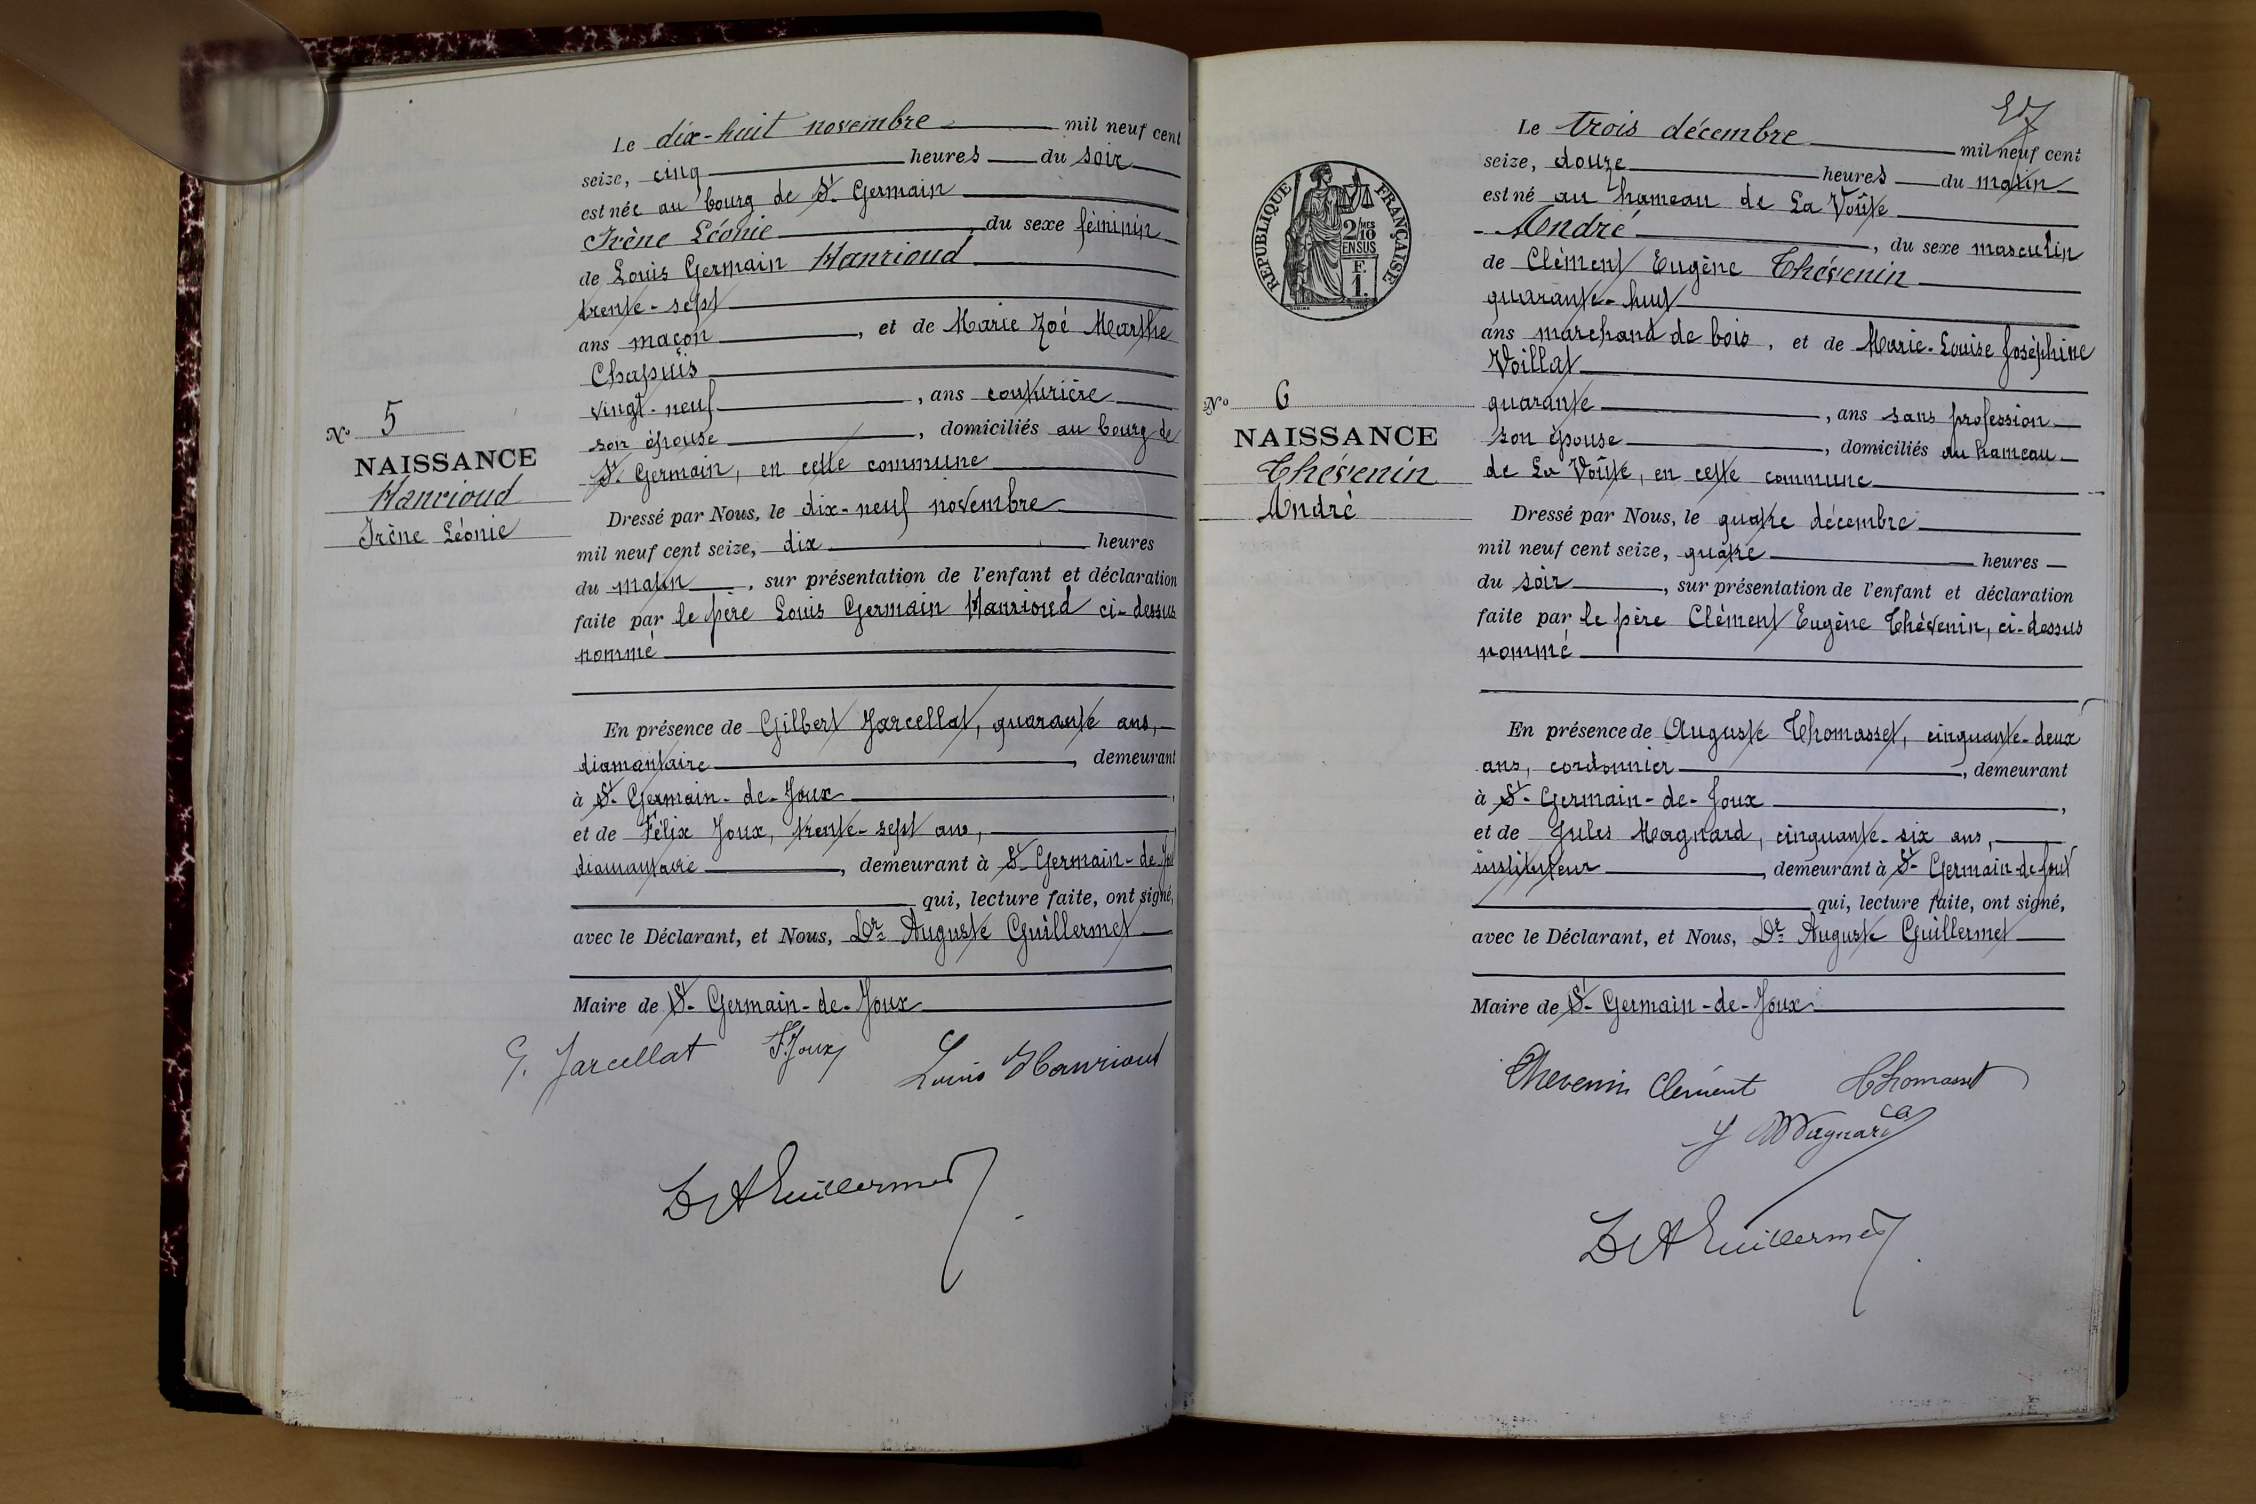 Le dix-huit novembre mil neuf cent
seize, cinq heures du soir
est née au bourg de St Germain
Irène Léonie, du sexe féminin
de Louis Germain Hanrioud
trente-sept
ans maçon, et de Marie Zoé Marthe
Chapuis
vingt-neuf, ans couturière
son épouse, domiciliés au bourg de
St Germain, en cette commune
No 5
NAISSANCE
Hanrioud
Irène Léonie
Dressé par Nous, le dix-neuf novembre
mil neuf cent seize, dix heures
du matin, sur présentation de l'enfant et déclaration
faite par le père Louis Germain Hanrioud ci-dessus
nommé
En présence de Gilbert Jarcellat, quarante ans,
diamantaire, demeurant
à St-Germain-de-Joux,
et de Félix Joux, trente-sept ans,
diamantaire, demeurant à St-Germain-de-Joux
qui, lecture faite, ont signé,
avec le Déclarant, et Nous, Dr Auguste Guillermet
Maire de St-Germain-de-Joux
G. Jarcellat F. Joux Louis Hanrioud
Dr A Guillermet
Le trois décembre mil neuf cent
seize, douze heures du matin
est né au hameau de La Voûte
André, du sexe masculin
de Clément Eugène Thévenin
quarante-huit
ans marchand de bois, et de Marie-Louise Joséphine
Voillat
quarante, ans sans profession
son épouse, domiciliés au hameau
de La Voûte, en cette commune
RÉPUBLIQUE FRANÇAISE
2/MES
10
EN SUS
F.
1.
No 6
NAISSANCE
Thévenin
André
Dressé par Nous, le quatre décembre
mil neuf cent seize, quatre heures
du soir, sur présentation de l'enfant et déclaration
faite par le père Clément Eugène Thévenin, ci-dessus
nommé
En présence de Auguste Thomasset, cinquante-deux
ans, cordonnier, demeurant
à St-Germain-de-Joux,
et de Jules Magnard, cinquante-six ans,
instituteur, demeurant à St-Germain-de-Joux
qui, lecture faite, ont signé,
avec le Déclarant, et Nous, Dr Auguste Guillermet
Maire de St-Germain-de-Joux
Thevenin Clément Thomasset
J Magnard
Dr A Guillermet